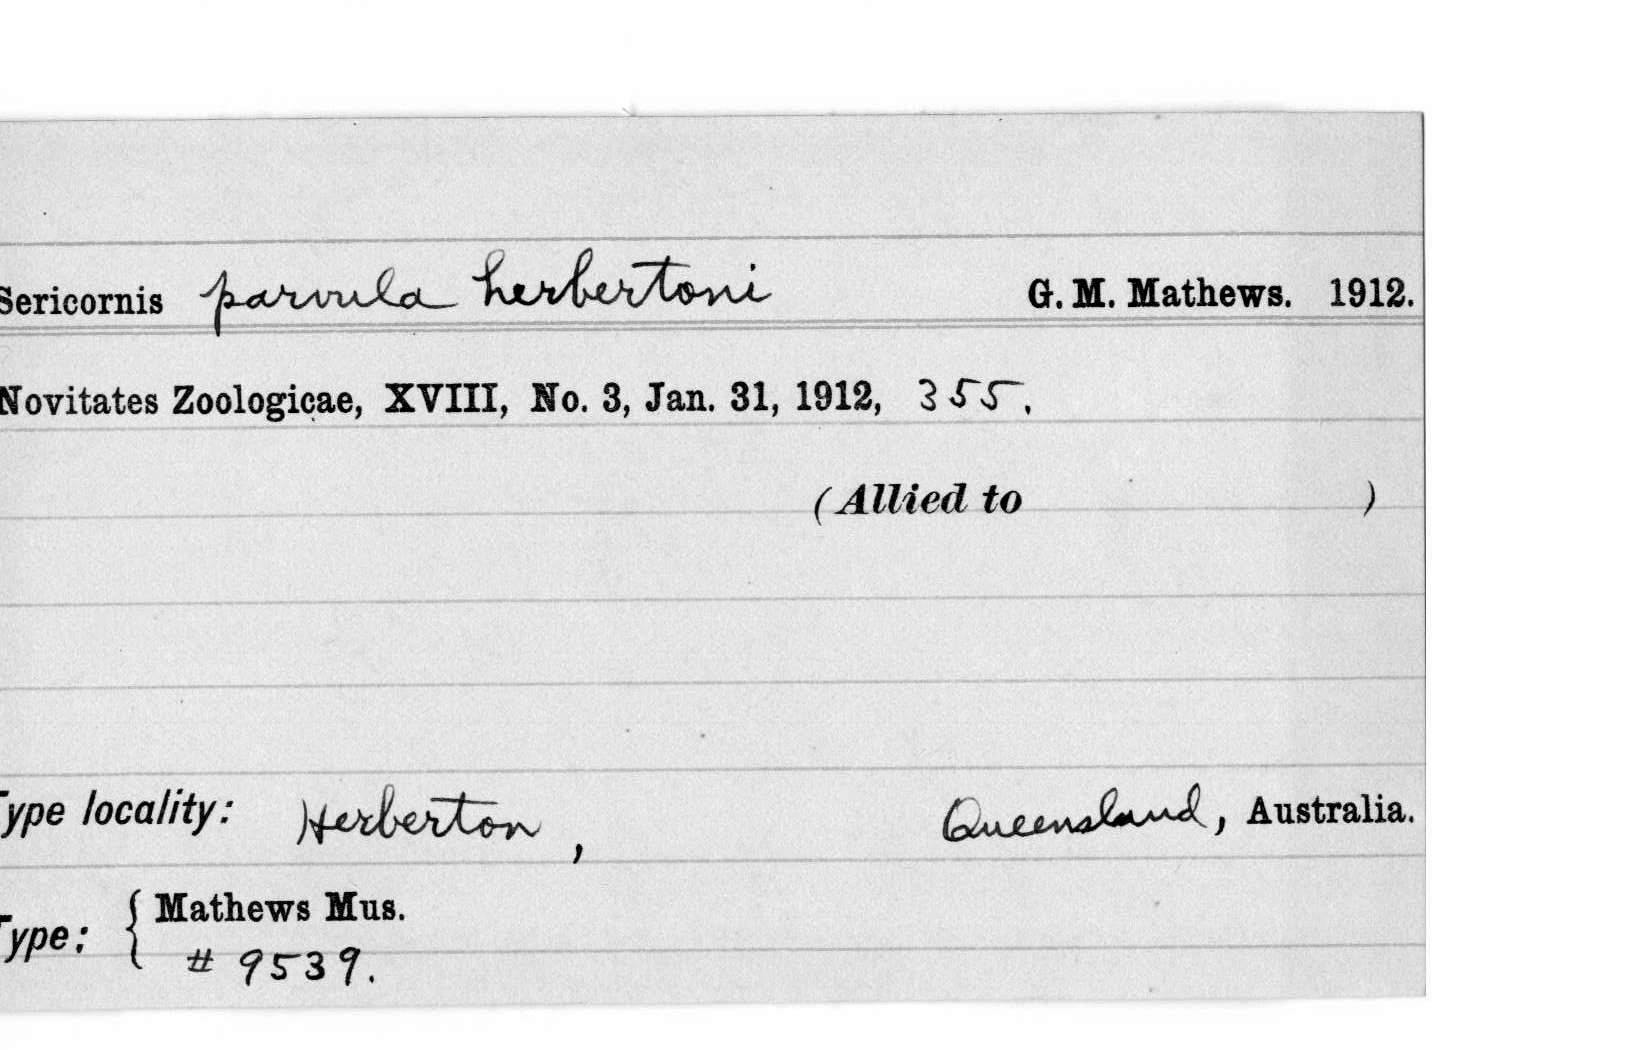 Sericornis parvula herbertoni G. M. Mathews. 1912.
Novitates Zoologicae, XVIII, No. 3, Jan. 31, 1912, 355.
(Allied to )
Type locality: Herberton, Queensland, Australia.
Type: { Mathews Mus.
# 9539.